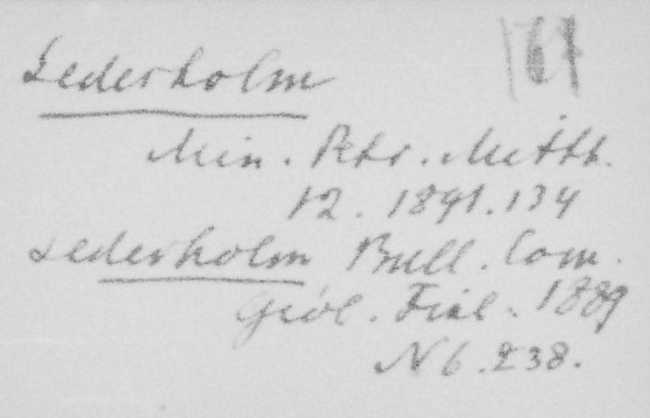 Sederholm
Min. Petr. Mitth.
12. 1891. 134
Sederholm Bull. Com.
Géol. Finl. 1889
N 6. 238.